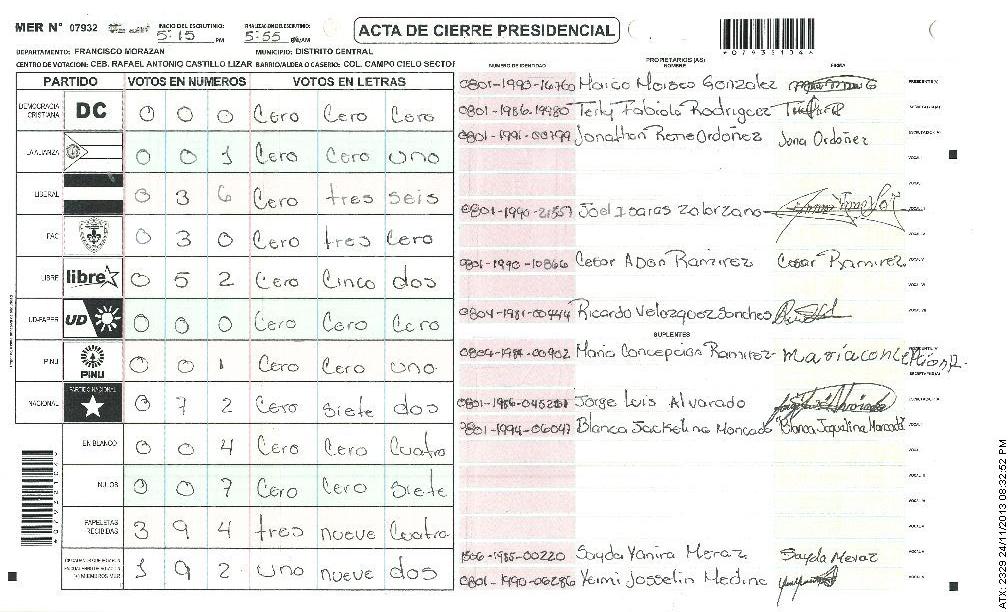 MER N° 07932 INICIO DEL ESCRUTINIO: 5:15 PM FINALIZACION DEL ESCRUTINIO: 5:55 AM/PM
ACTA DE CIERRE PRESIDENCIAL
DEPARTAMENTO: FRANCISCO MORAZAN MUNICIPIO: DISTRITO CENTRAL
CENTRO DE VOTACION: CEB. RAFAEL ANTONIO CASTILLO LIZAR BARRIO/ALDEA O CASERIO: COL. CAMPO CIELO SECTOR
PARTIDO VOTOS EN NUMEROS VOTOS EN LETRAS
DEMOCRACIA CRISTIANA DC 0 0 0 Cero Cero Cero
LA ALIANZA 0 0 1 Cero Cero uno
LIBERAL 0 3 6 Cero tres seis
FAC 0 3 0 Cero tres Cero
LIBRE libre 0 5 2 Cero Cinco dos
UD-FAPER UD 0 0 0 Cero Cero Cero
PINU PINU 0 0 1 Cero Cero uno
NACIONAL PARTIDO NACIONAL 0 7 2 Cero siete dos
EN BLANCO 0 0 4 Cero Cero Cuatro
NULOS 0 0 7 Cero Cero Siete
PAPELETAS RECIBIDAS 3 9 4 tres nueve Cuatro
1 9 2 uno nueve dos
PROPIETARIOS (AS)
NUMERO DE IDENTIDAD NOMBRE FIRMA
0801-1993-16760 Marco Moises Gonzalez
0801-1986-19980 Terly Fabiola Rodriguez
0801-1991-00799 Jonathan Rene Ordoñez Jona Ordoñez
0801-1990-21557 Joel Isaias Zolorzano
0801-1990-10866 Cesar Adan Ramirez Cesar Ramirez
0801-1981-00444 Ricardo Velazquez Sanches
SUPLENTES
0804-1984-00902 Maria Concepcion Ramirez Maria concepcion R.
Jorge Luis Alvarado
0801-1994-06047 Blanca Jackeline Moncada Blanca Jaquelina Moncada
1506-1985-00220 Sayda Yanira Meraz Sayda Meraz
0801-1990-06286 Yeimi Josselin Medina
ATX: 2329 24/11/2013 08:32:52 PM